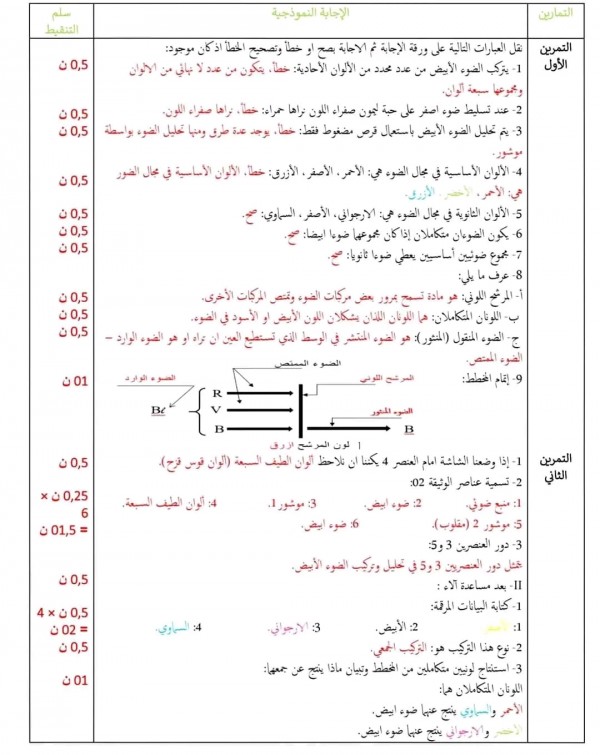 التمارين
الإجابة النموذجية
سلم التنقيط
التمرين الأول
نقل العبارات التالية على ورقة الإجابة ثم الاجابة بصح او خطأ وتصحيح الخطأ اذكان موجود:
1- يتركب الضوء الأبيض من عدد محدد من الألوان الأحادية: خطأ، يتكون من عدد لا نهائي من الالوان
ومجموعها سبعة ألوان.
0,5 ن
2- عند تسليط ضوء اصفر على حبة ليمون صفراء اللون نراها حمراء: خطأ، نراها صفراء اللون.
0,5 ن
3- يتم تحليل الضوء الأبيض باستعمال قرص مضغوط فقط: خطأ، يوجد عدة طرق ومنها تحليل الضوء بواسطة
موشور.
0,5 ن
4- الألوان الأساسية في مجال الضوء هي: الأحمر، الأصفر، الأزرق: خطأ، الألوان الأساسية في مجال الضور
هي: الأحمر، الأخضر، الأزرق.
0,5 ن
5- الألوان الثانوية في مجال الضوء هي: الارجواني، الأصفر، السماوي: صح.
0,5 ن
6- يكون الضوءان متكاملان إذا كان مجموعهما ضوءا ابيضا: صح.
0,5 ن
7- مجموع ضوئيين أساسسيين يعطي ضوءا ثانويا: صح.
0,5 ن
8- عرف ما يلي:
أ- المرشح اللوني: هو مادة تسمح بمرور بعض مركبات الضوء وتمتص المركبات الأخرى.
0,5 ن
ب- اللونان المتكاملان: هما اللونان اللذان يشكلان اللون الأبيض او الأسود في الضوء.
0,5 ن
ج- الضوء المنقول (المنثور): هو الضوء المنتشر في الوسط الذي تستطيع العين ان تراه او هو الضوء الوارد –
الضوء الممتص.
0,5 ن
9- إتمام المخطط:
01 ن
الضوء الممتص
الضوء الوارد
المرشح اللوني
R
V
B
Bℓ
الضوء المنثور
B
لون المرشح ازرق
التمرين الثاني
1- إذا وضعنا الشاشة امام العنصر 4 يكننا ان نلاحظ ألوان الطيف السبعة (ألوان قوس قزح).
0,5 ن
2- تسمية عناصر الوثيقة 02:
0,25 ن × 6
= 01,5 ن
1: منبع ضوئي. 2: ضوء ابيض. 3: موشور 1. 4: ألوان الطيف السبعة.
5: موشور 2 (مقلوب). 6: ضوء ابيض.
3- دور العنصرين 3 و5:
يتمثل دور العنصريين 3 و5 في تحليل وتركيب الضوء الأبيض.
0,5 ن
II- بعد مساعدة آلاء :
1- كتابة البيانات المرقمة:
0,5 ن × 4
= 02 ن
1: 2: الأبيض. 3: الارجواني. 4: السماوي.
2- نوع هذا التركيب هو: التركيب الجمعي.
0,5 ن
3- استنتاج لونيين متكاملين من المخطط وتبيان ماذا ينتج عن جمعهما:
اللونان المتكاملان هما:
01 ن
الأحمر والسماوي ينتج عنهما ضوء ابيض.
الأخضر والارجواني ينتج عنهما ضوء ابيض.